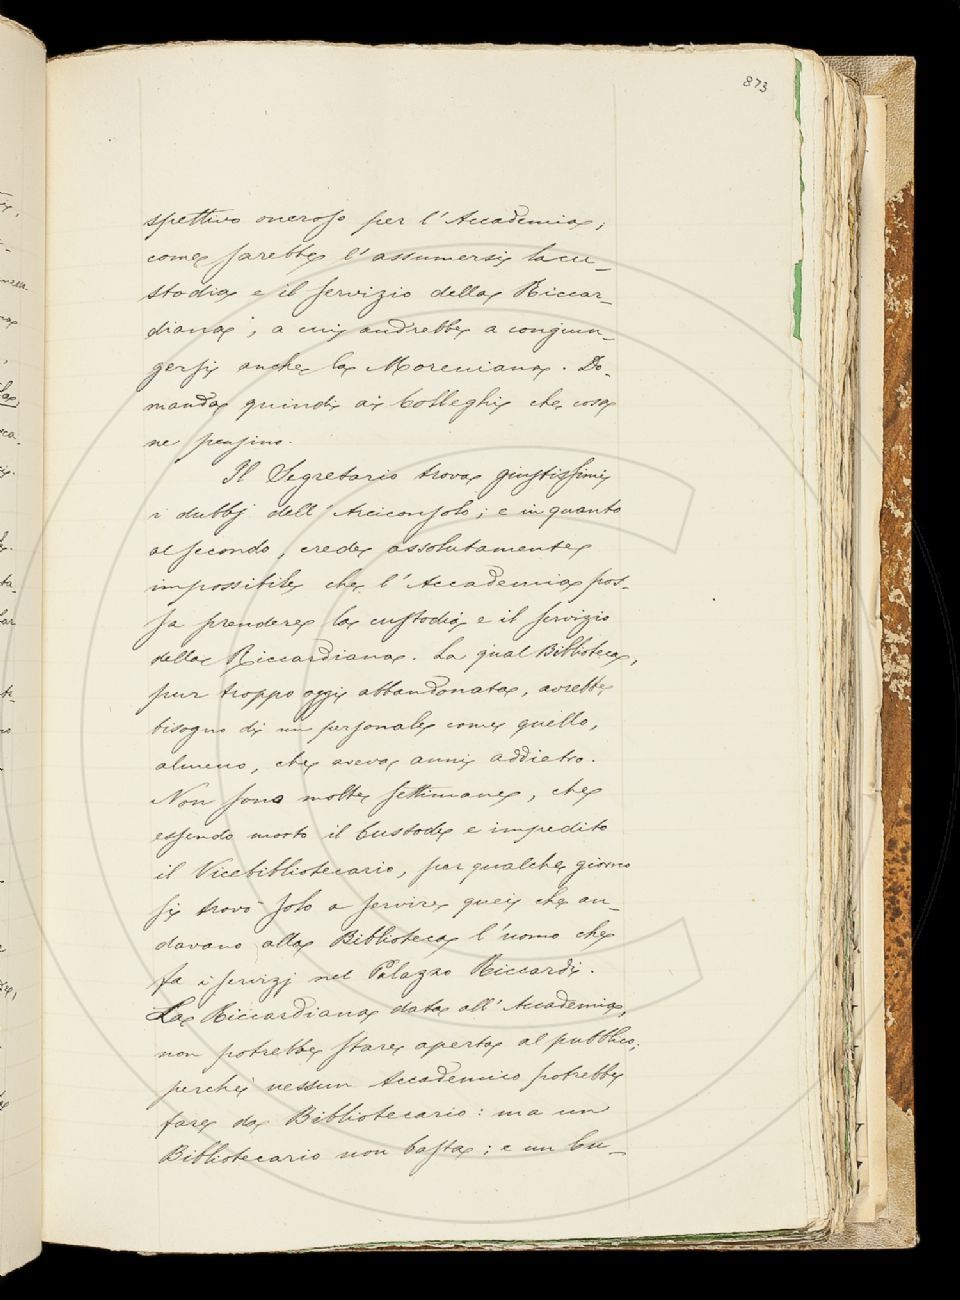 873
spettivo oneroso per l'Accademia;
come sarebbe l'assumersi la cu_
stodia e il servizio della Riccar_
diana; a cui andrebbe a congiun_
gersi anche la Moreniana. Do_
manda quindi ai Colleghi che cosa
ne pensino.
Il Segretario trova giustissimi
i dubbj dell'Arciconsolo; e in quanto
al secondo, crede assolutamente
impossibile che l'Accademia pos_
sa prendere la custodia e il servizio
della Riccardiana. La qual Biblioteca,
pur troppo oggi abbandonata, avrebbe
bisogno di un personale come quello,
almeno, che aveva anni addietro.
Non sono molte settimane, che
essendo morto il Custode e impedito
il Vicebibliotecario, per qualche giorno
si trovò solo a servire quei che an_
davano alla Biblioteca l'uomo che
fa i servizj nel Palazzo Riccardi.
La Riccardiana data all'Accademia,
non potrebbe stare aperta al pubblico;
perchè nessun Accademico potrebbe
fare da Bibliotecario: ma un
Bibliotecario non basta; e un Cu_